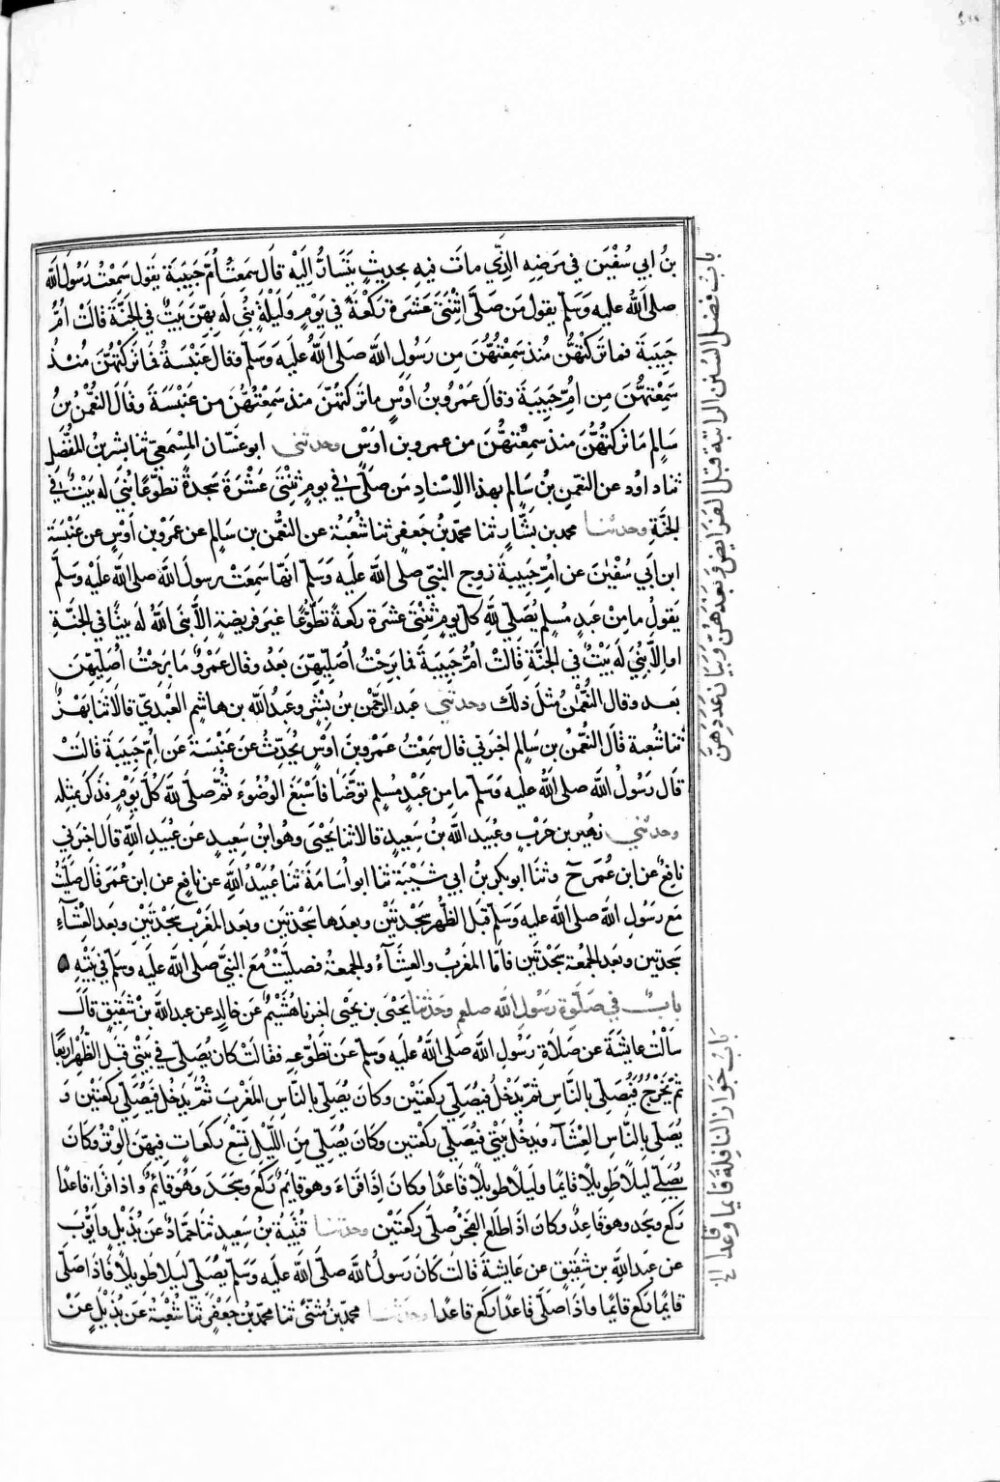 بنُ ابي سُفْيٰنَ في مَرَضِهِ الذَّي ماتَ فيهِ بحديثٍ يَتَسَارُّ اليْهِ قالَ سمعتُ اُمَّ حَبِيبَةَ يَقول سَمِعْتُ رَسُولَ الله
صلى اللهُ عليه وَسَلّم يقول مَن صَلَّى اثِنْتَىْ عَشَرَةَ رَكْعَةً في يَوْمٍ وَلَيْلَةٍ بُنِيَ لَه بِهِنَّ بَيْتٌ في الجَنَّةِ قالَتْ اُمُّ
حَبِيبَةَ فما تَرَكتُهُنَّ مُنذ سَمِعْتُهُنَّ مِن رَسُولِ الله صَلى اللهُ عليَه وَسَلّم وقالَ عَنْبَسَةُ فمَا تَرَكْتُهُنَّ مُنْذُ
سَمِعْتهُنَّ مِن اُمِّ حَبِيبَةَ وَقالَ عَمْرُو بنُ اَوْسٍ ما تَركتهُنّ منذ سَمِعْتهُنَّ من عَنْبَسَةَ وقَالَ النُّعْمٰنُ بنُ
سَالِمٍ مَا تَرَكتُهُنَّ منذ سَمِعْتهُنَّ من عمرو بن اَوْسٍ وحدثنى ابو غسّان المِسْمَعِيّ ثنا بشر بنُ المفضَّل
ثنا داود عن النعمٰن بنُ سَالِمٍ بهذا الاِسْنادِ مَن صَلّى في يومٍ ثِنْتَيْ عَشْرَةَ سَجدةً تطوّعاً بُنِيَ له بَيْتٌ في
الجَنَّةِ وحدثنا محمد بن بَشّارٍ ثنا محمّد بنُ جَعفرٍ ثنا شُعْبَةُ عن النُّعمٰن بن سَالِمٍ عن عَمْرِو بن اَوْسٍ عن عَنْبَسَةَ
ابن اَبي سُفْيٰنَ عَن اُمّ حَبِيبةَ زوج النبيّ صلى الله عليه وَسَلّم انّها سَمِعَتْ رسولَ الله صلى الله عَليْه وَسَلَّم
يَقولُ ما مِنْ عَبدٍ مُسلِمٍ يُصَلّي للهِ كلّ يومٍ ثِنْتَيْ عشرَةَ ركعةً تطَوّعًا غيرَ فريضةٍ اِلاَّ بنَى اللهُ لَه بيتًا في الجَنّةِ
او اِلاَّ بُنِيَ لَه بَيْتٌ في الجَنَّةِ قالتْ اُمُّ حَبِيبَةَ فما بَرِحْتُ اُصَلِّيهِنّ بَعْدُ وقالَ عَمْرٌو مَا بَرِحْتُ اُصَلِّيهِنّ
بَعد وقال النُّعْمٰن مُثلَ ذلكَ وحدثنى عبد الرَّحْمٰن بن بِشْرٍ وعَبْدُ الله بن هاشم العَبْديّ قالا ثنا بَهْزٌ
ثنا شُعبة قالَ النُّعمٰنُ بن سَالمٍ اخبرني قال سَمِعْتُ عَمْرَو بنَ اَوْسٍ يُحَدِّثُ عن عَنبَسَةَ عَن اُمّ حَبِيبَةَ قالتْ
قالَ رَسُولُ الله صلى اللهُ عليه وَسَلّم ما مِن عَبْدٍ مُسلِمٍ تَوضَّأ فاَسْبَغَ الوُضُوْءَ ثمَّ صَلّى للهِ كُلَّ يَوْمٍ فذكرَ بمِثلِه
وحدثنى زهير بن حَرْبٍ وعُبَيد الله بنُ سَعِيدٍ قالا ثنا يَحْيَى وهُوَ ابنُ سَعِيدٍ عَن عُبَيدِ اللهِ قالَ اخبَرَني
نافِعٌ عن ابن عُمَرَ ح وثنَا ابو بكر بنُ ابي شَيْبَةَ ثنا ابو اُسَامَةَ ثنا عُبَيْدُ اللهِ عن نافِعٍ عن ابن عُمَرَ قالَ صَلّيْتُ
مَعَ رَسُولِ الله صلى الله عليه وَسَلّم قبلَ الظُّهرِ سَجْدَتَيْنِ وبعدَها سَجْدَتَين وبَعدَ المغربِ سَجْدَتَيْنِ وبَعدَ العِشَآءِ
سَجدتَين وبَعدَ الجُمعَةِ سَجْدَتَين فامّا المَغربُ والعِشَآءُ والجمعةُ فصَلّيْتُ مَعَ النبيّ صلى الله عليه وسَلّم في بَيْتِهِ
بابٌ في صَلوةِ رَسُولِ الله صلعم وحَدثنا يَحْيَى بن يَحْيَى اخبرنا هُشَيْمٌ عَن خالِدٍ عن عبد الله بنْ شَقِيقٍ قالَ
سَالتُ عايشَةَ عن صَلاَةِ رَسُولِ الله صلّى اللهُ عليه وَسَلّم عَن تطَوّعِهِ فقالَتْ كان يُصَلّي في بَيتْي قبلَ الظُّهرِ اربعًا
ثمَّ يَخْرُجُ فيُصَلّى بالنَّاسِ ثمّ يَدْخُلُ فيُصَلّي ركعَتَيْن وكانَ يُصَلّي بالنَّاسِ المَغْرِبَ ثُمَّ يَدخُلُ فيُصَلّي رَكعتَيْن وَ
يُصَلّى بالنَّاسِ العِشَآءَ ويَدخُلُ بَيْتي فيُصَلّي ركعتين وكانَ يُصَلّي مِنَ اللَّيْلِ تِسْعَ ركَعَاتٍ فيهِنّ الوِتْرُ وكانَ
يُصَلّي لَيلاً طويلاً قائِمًا ولَيلاً طويلاً قاعدًا وكانَ اِذَا قرَاءَ وهو قائِمٌ رَكَعَ وسَجَدَ وهُوَ قايمٌ واذا قراءَ قاعدًا
رَكع وسَجدَ وهو قاعِدٌ وكانَ اذَا طلَعَ الفَجْرُ صَلّى ركعَتَيْن وحدثنا قُتَيْبَة بن سَعِيدٍ ثنا حَمَّادٌ عَن بُدَيْلٍ واَيُّوبَ
عن عَبدِ اللهِ بن شَقيقٍ عن عَايشةَ قالتْ كانَ رَسُولُ الله صَلّى الله عليَه وَسَلّم يُصَلّى لَيلا طويلاً فاذا صَلّى
قائِمًا رَكَعَ قائِمًا واذَا صَلّى قاعدًا رَكَعَ قاعدًا وحدثنا محمّد بن مُثنّى ثنا محمد بن جَعفرٍ ثنا شُعْبَةُ عَن بُدَيْلٍ عَنْ
باب فضل السُّنَن الراتبة قبْل الفَرَايض وَبَعْدَهُنَّ وَبَيَان عَدَدِهِنَّ
بَاب جَوَاز النَّافِلة قَايمًا وقاعدًا